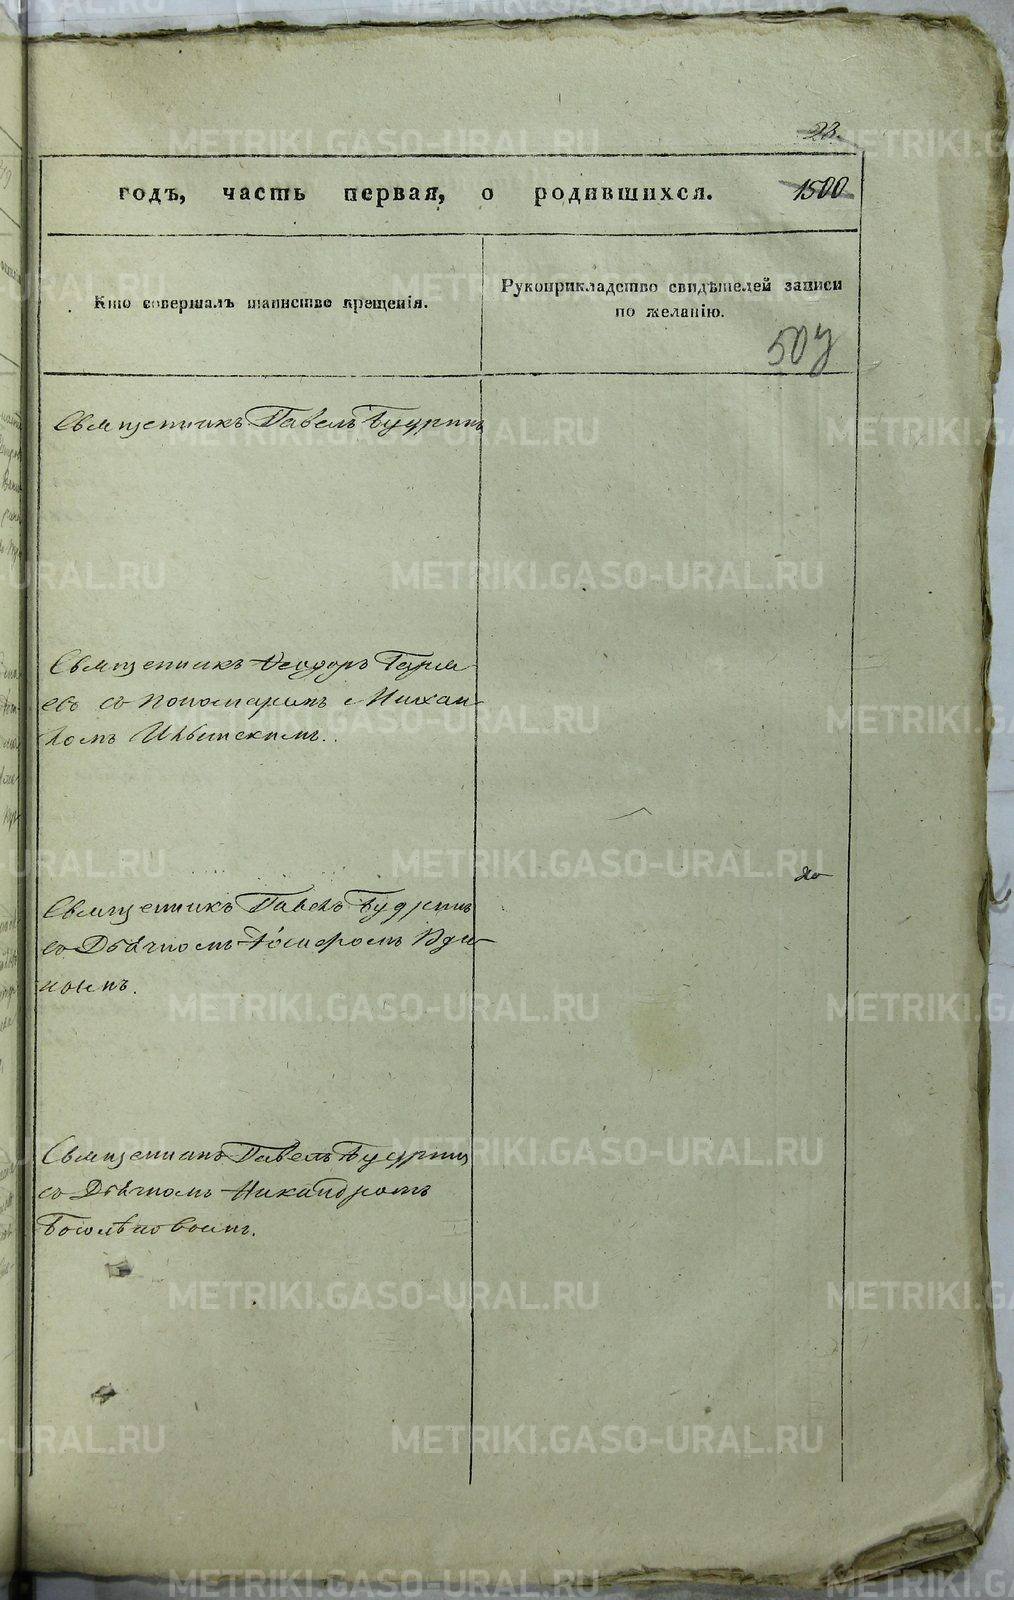 23.
годъ, часть первая, о родившихся. 1500
Кто совершалъ таинство крещенія.
Рукоприкладство свидѣтелей записи
по желанію.
507
Священникъ Павелъ Будринъ
Священникъ Ѳеодоръ
евъ со пономаремъ Михаи-
ломъ
Священникъ Павелъ Будринъ
со Дьячкомъ Іосифомъ Уди-
новымъ.
Священникъ Павелъ Будринъ
со Дьячкомъ Никандромъ
Боголѣповымъ.
METRIKI.GASO-URAL.RU